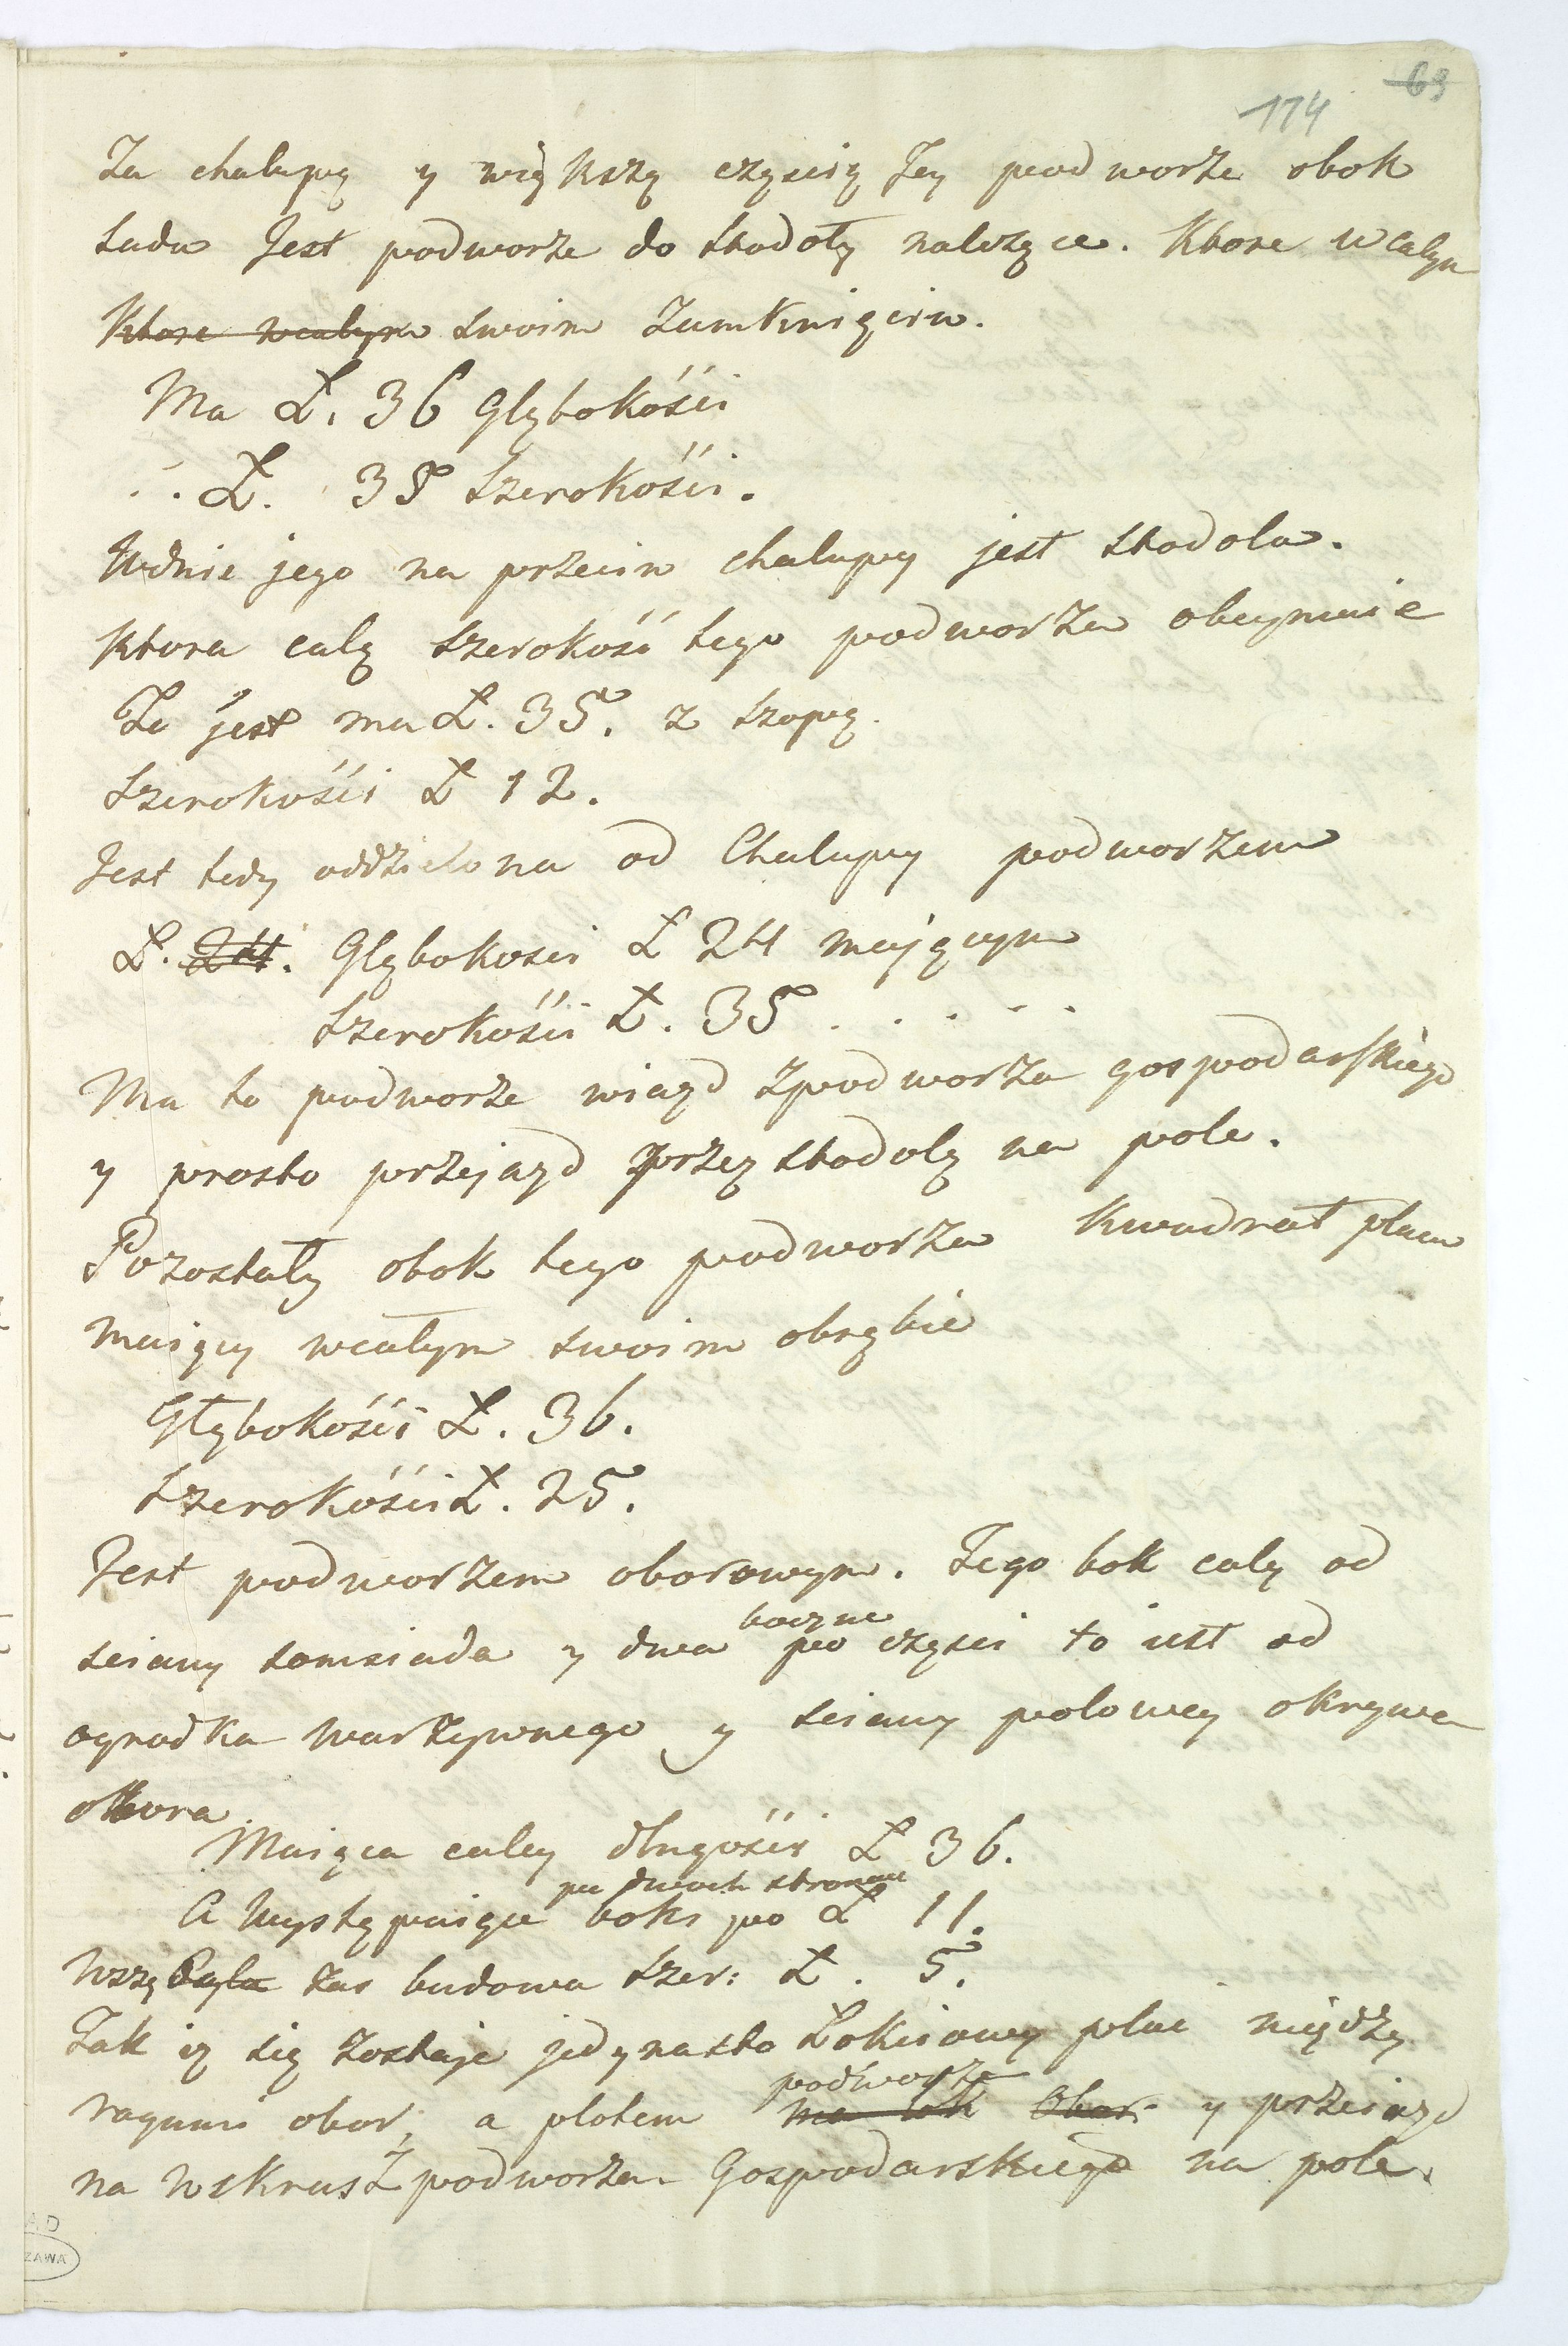 63
174
Za chalupą y większą częscią Jey podworze obok
sadu Jest podworze do stodoły należące. Ktore w calym
Ktore wcalym swoim Zamknięciu.
Ma Ł. 36 Głębokości
Ł. 35 Szerokości.
Wdnie jego na przeciw chalupy jest stodola.
Ktora calą szerokość tego podworza obeymuie
To jest ma Ł. 35. z szopą.
Szerokości Ł 12.
Jest tedy oddzielona od Chalupy podworzem
Ł. 24. Głębokosci Ł 24 mającym
Szerokości Ł. 35 . . . . .
Ma to podworze wiazd zpodworza gospodarskiego
y prosto przejazd przez stodolę na pole.
Pozostały obok tego podworza Kwadrat placu
maiący wcałym swoim obrębie
Głębokości Ł. 36.
Szerokości Ł. 25.
Jest podworzem oborowym. Jego bok cały od
sciany somsiada y dwa boczne po częsci to iest od
ogrodka warzywnego y sciany polowey okrywa
obora.
Maiąca caley długości Ł 36.
A Występuiące boki po dwoch stronach po Ł 11.
Wszę zas budowa szer: Ł. 5.
Tak iz się zostaje jedynasto Łokciowy plac między
rogami obor, a płotem podworza y przeiazd
na wskrus Z podworza Gospodarskiego na pole.